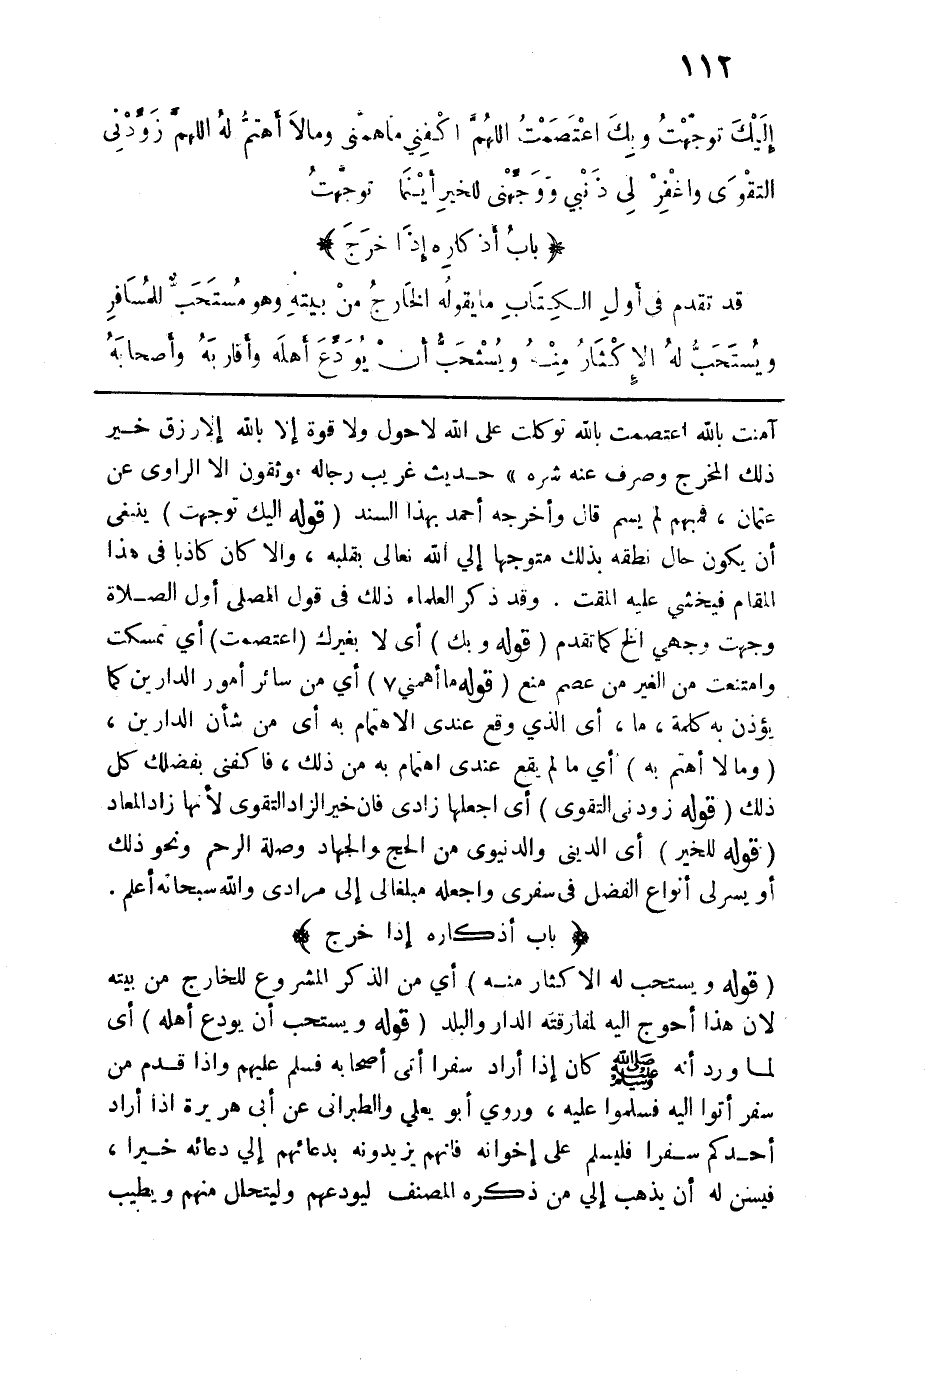 ١١٢
إِلَيْكَ توجَّهْتُ وبِكَ اعْتَصَمْتُ اللهُمَّ اكْفِنِي ماهمَّنى ومالاَ أَهتمُّ لهُ اللهمَّ زَوِّدْنِى
التقْوَى واغْفِرْ لِى ذَنْبِي وَوَجِّهْنى للخيرِ أيْنَمَا توجَّهتُ
﴿ بابُ أذكارِه إذَا خرَجَ ﴾
قد تقدم فى أولِ الكِتَابِ مايقولُه الخَارِجُ منْ بيتهِ وهو مُستَحَبٌّ للمُسَافرِ
ويُستَحَبُّ لهُ الإِكْثَارُ مِنْهُ ويُسْتحَبُّ أنْ يُوَدِّعَ أهلَه وأقاربَهُ وأصحابَهُ
آمنت بالله اعتصمت بالله توكلت على الله لاحول ولا قوة إلا بالله إلارزق خير
ذلك المخرج وصرف عنه شره » حديث غريب رجاله موثقون الا الراوى عن
عثمان ، فمبهم لم يسم قال وأخرجه أحمد بهذا السند ( قوله اليك توجهت ) ينبغى
أن يكون حال نطقه بذلك متوجها إلي الله تعالى بقلبه ، والا كان كاذبا فى هذا
المقام فيخشي عليه المقت . وقد ذكر العلماء ذلك فى قول المصلى أول الصلاة
وجهت وجهي الخ كما تقدم ( قوله وبك ) أى لا بغيرك (اعتصمت) أي تمسكت
وامتنعت من الغير من عصم منع ( قوله ما أهمني٧ ) أي من سائر أمور الدارين كما
يؤذن به كلمة ، ما ، أى الذي وقع عندى الاهتمام به أى من شأن الدارين ،
( وما لا أهتم به ) أي ما لم يقع عندى اهتمام به من ذلك ، فاكفنى بفضلك كل
ذلك ( قوله زودنى التقوى ) أى اجعلها زادى فان خير الزاد التقوى لأنها زاد المعاد
( قوله للخير ) أى الدينى والدنيوى من الحج والجهاد وصلة الرحم ونحو ذلك
أو يسر لى أنواع الفضل فى سفرى واجعله مبلغالى إلى مرادى والله سبحانه أعلم .
﴿ باب أذكاره إذا خرج ﴾
( قوله ويستحب له الاكثار منه ) أي من الذكر المشروع للخارج من بيته
لان هذا أحوج اليه لمفارقته الدار والبلد ( قوله ويستحب أن يودع أهله ) أى
لما ورد أنه ﷺ كان إذا أراد سفرا أتى أصحابه فسلم عليهم واذا قدم من
سفر أتوا اليه فسلموا عليه ، وروي أبو يعلي والطبرانى عن أبى هريرة اذا أراد
أحدكم سفرا فليسلم على إخوانه فانهم يزيدونه بدعائهم إلي دعائه خيرا ،
فيسن له أن يذهب إلي من ذكره المصنف ليودعهم وليتحال منهم ويطيب